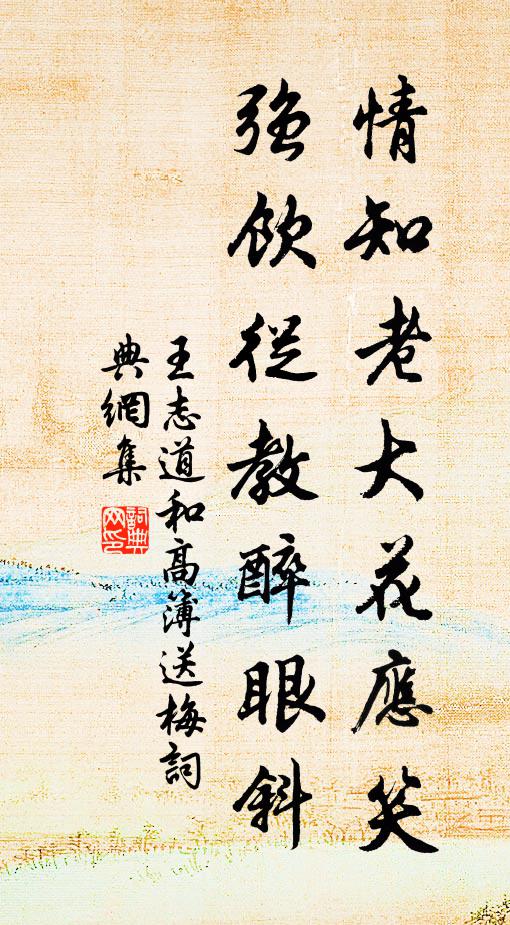 情知老大花應笑
強飲從教醉眼斜
王志道和高簿送梅詞
典網集
詞典網印